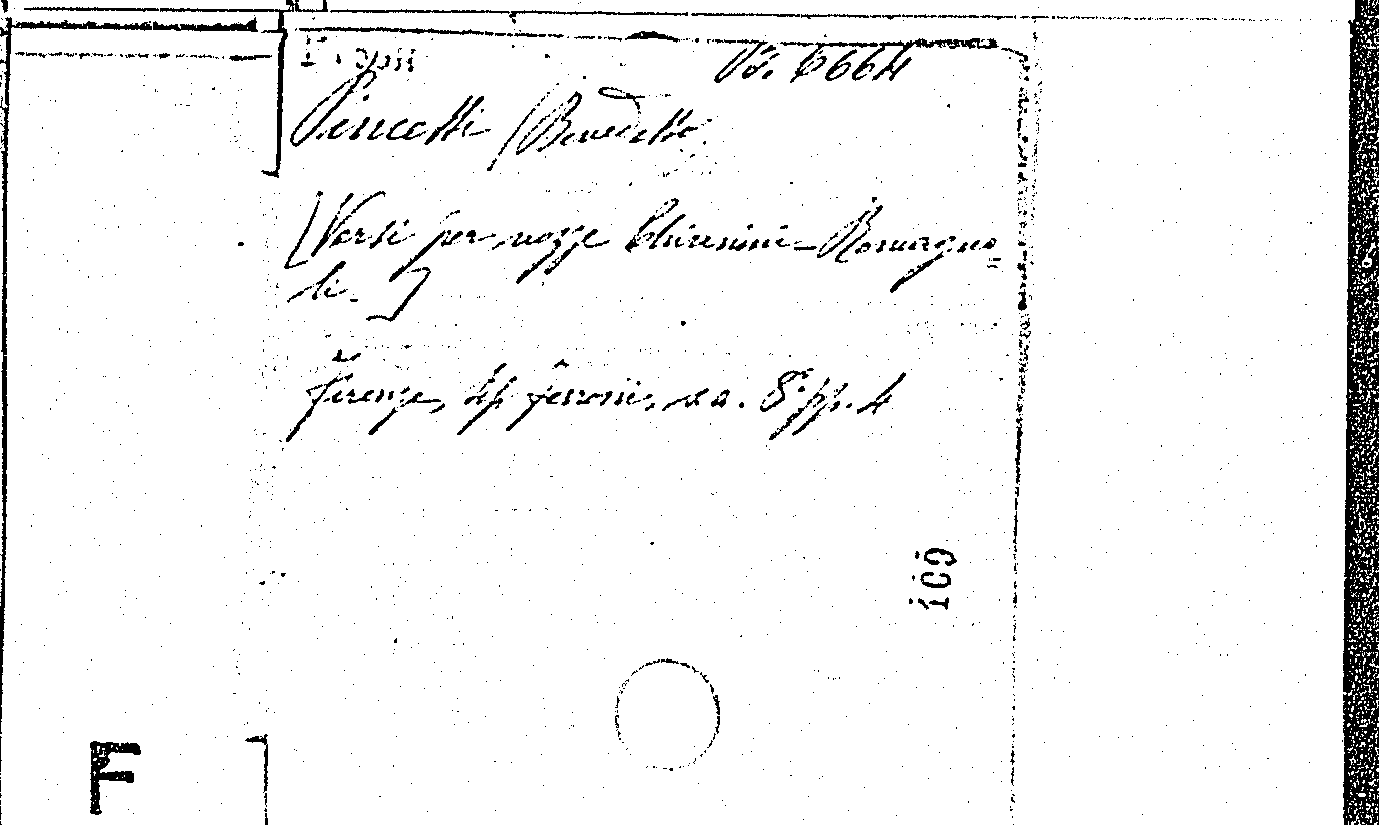 Vz. 6664
Pincetti (Benedetto
[Versi per nozze Chirinini-Romagno=
li.]
Firenze, tip. Ferroni, s. a. 8° pp. 4
109
F